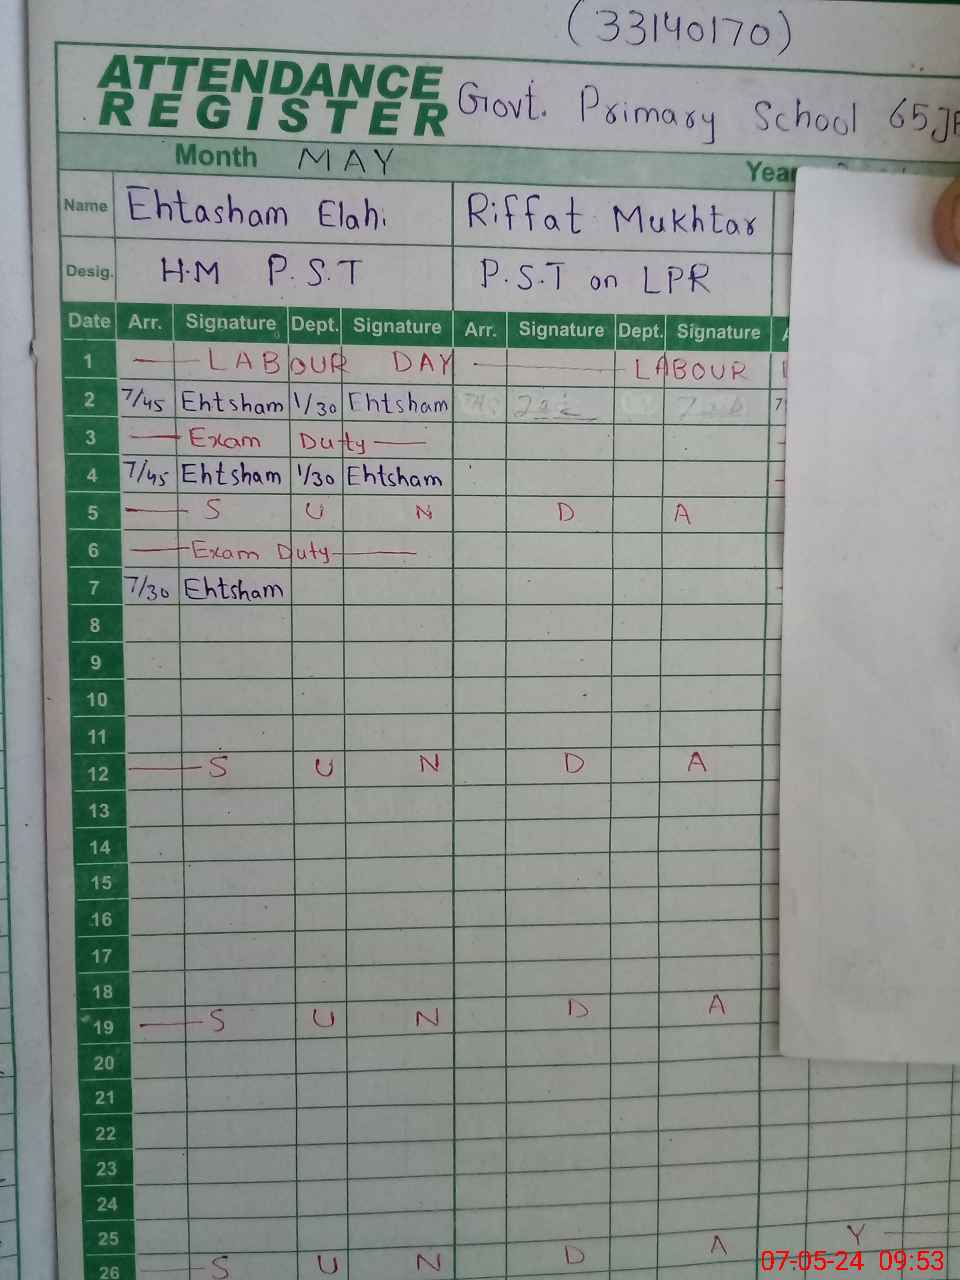 (33140170)
ATTENDANCE
REGISTER Govt. Primary School 65JB
Month MAY Year
Name Ehtasham Elahi Riffat Mukhtar
Desig. H.M P.S.T P.S.T on LPR
Date Arr. Signature Dept. Signature Arr. Signature Dept. Signature
1 LABOUR DAY LABOUR
2 7/45 Ehtsham 1/30 Ehtsham
3 Exam Duty
4 7/45 Ehtsham 1/30 Ehtsham
5 S U N D A
6 Exam Duty
7 7/30 Ehtsham
8
9
10
11
12 S U N D A
13
14
15
16
17
18
19 S U N D A
20
21
22
23
24
25
26 S U N D A Y
07-05-24 09:53